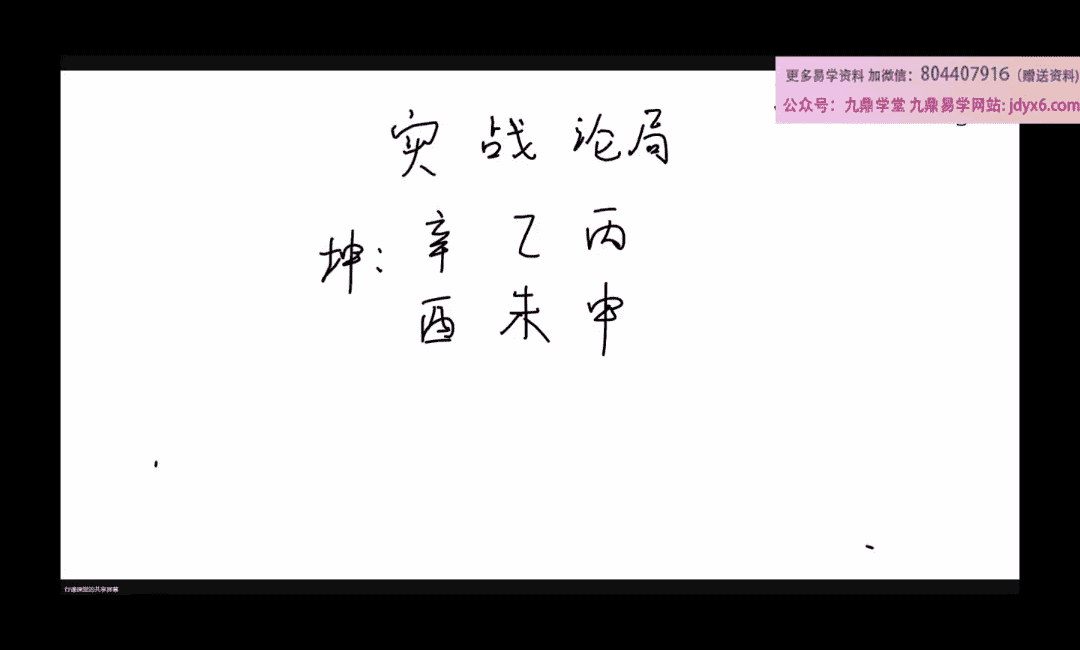 更多易学资料 加微信：804407916（赠送资料)
公众号：九鼎学堂 九鼎易学网站: jdyx6.com
实战论局
坤：辛 乙 丙
酉 未 申